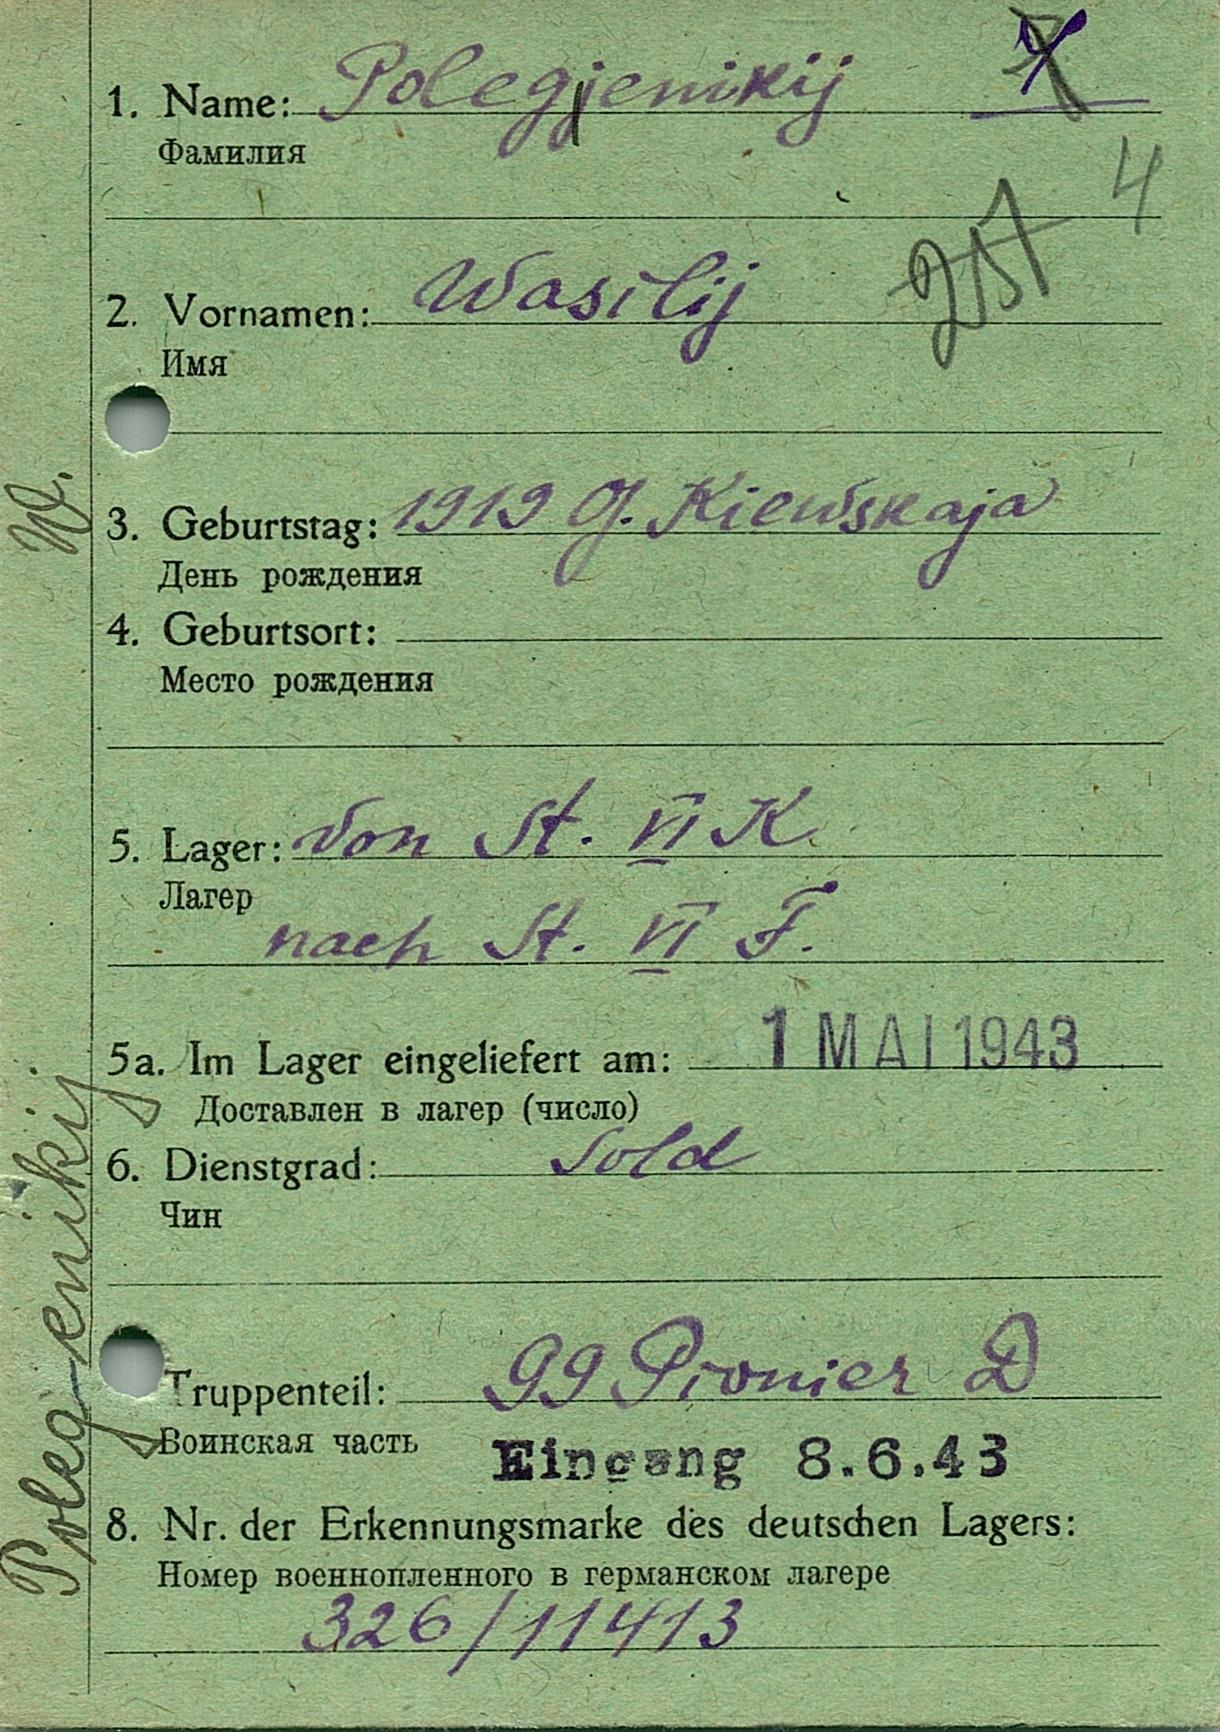 1. Name: Polegjenikij
Фамилия
4
2. Vornamen: Wasilij
Имя
3. Geburtstag: 1919 G. Kiewskaja
День рождения
4. Geburtsort:
Место рождения
5. Lager: von St. VI K.
Лагер
nach St. VI F.
5a. Im Lager eingeliefert am: 1 MAI 1943
Доставлен в лагер (число)
6. Dienstgrad: Sold
Чин
Truppenteil: 99 Pionier D
Воинская часть
Eingang 8.6.43
8. Nr. der Erkennungsmarke des deutschen Lagers:
Номер военнопленного в германском лагере
326/11413
Poleg-enikij W.